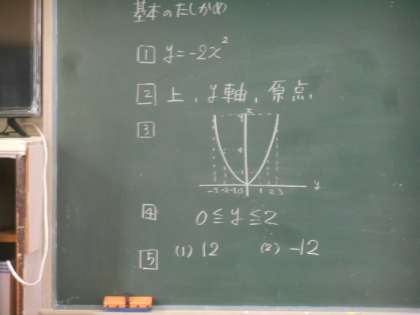 基本のたしかめ
1 y=-2x²
2 上, y軸, 原点
3
x
y
4 0≦y≦2
5 (1) 12 (2) -12